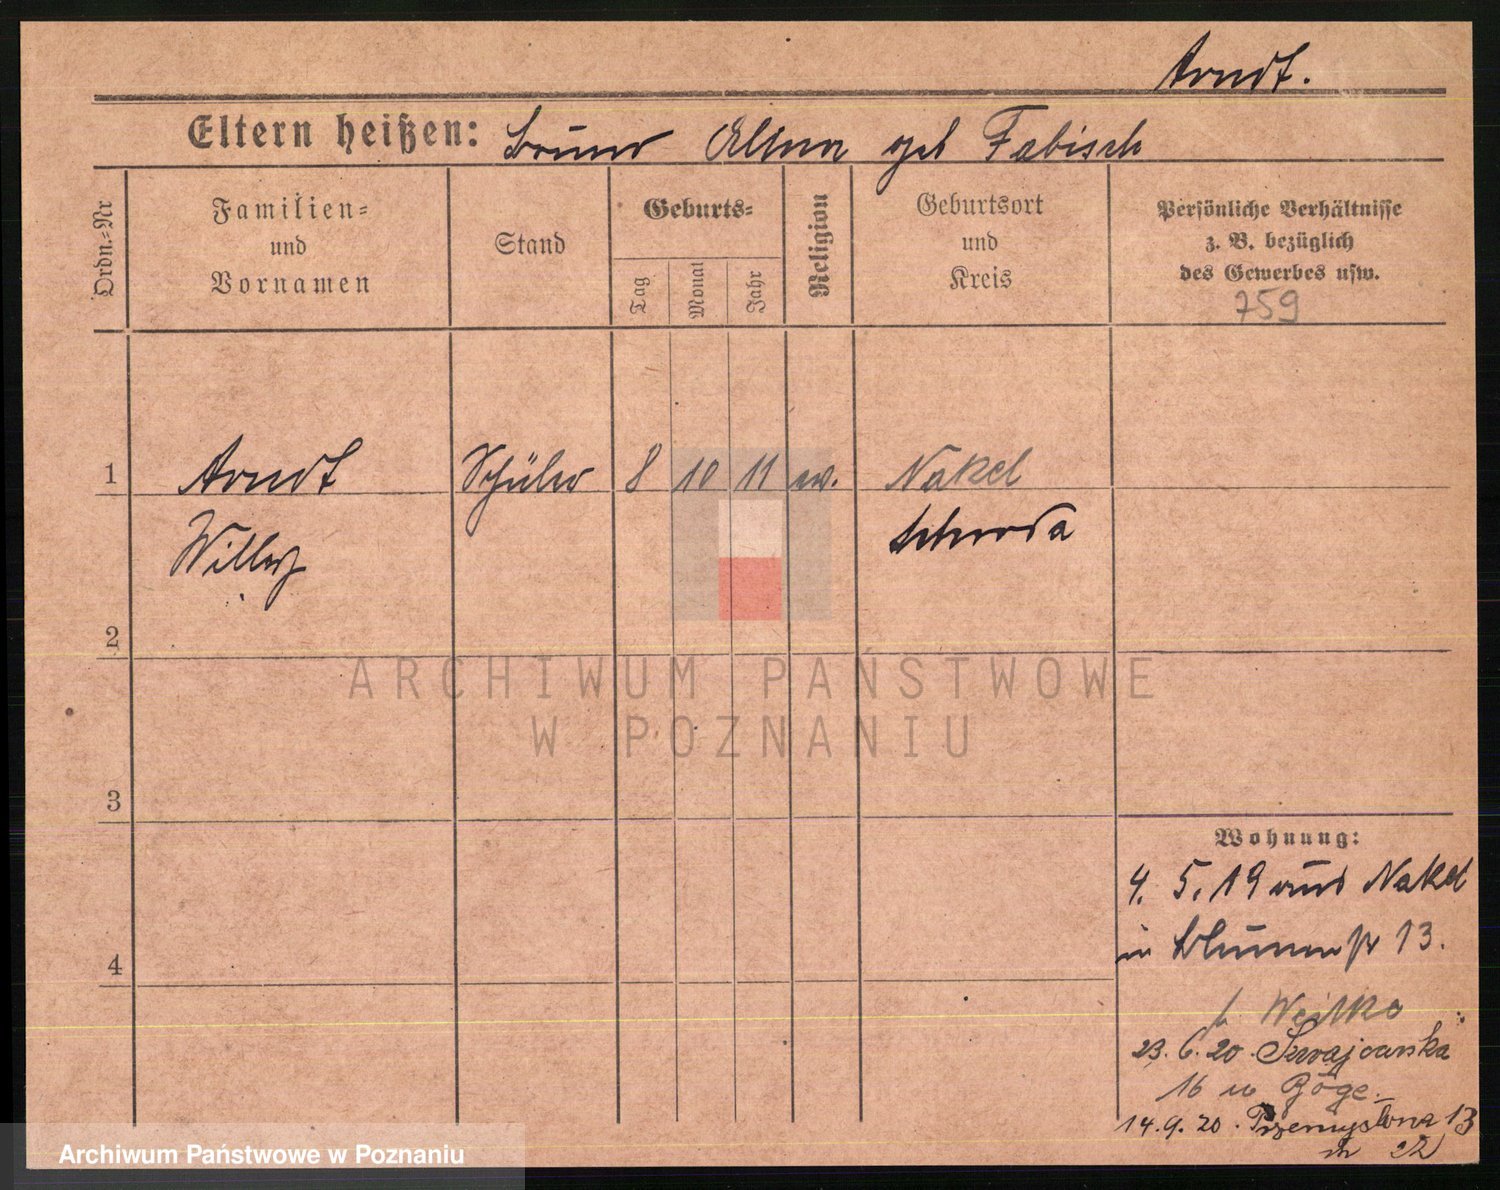 Arndt.
Eltern heißen: Bruno Alma geb Fabisch
Ordn.=Nr
Familien=
und
Vornamen
Stand
Geburts=
Tag
Monat
Jahr
Religion
Geburtsort
und
Kreis
Persönliche Verhältnisse
z. B. bezüglich
des Gewerbes usw.
759
1 Arndt Schüler 8 10 11 ev. Nakel
Willy
2
3
4
Wohnung:
4. 5. 19 aus Nakel
in Blumenstr 13.
b.
23. 6. 20. Szwajcarska
16 u Böge.
14. 9. 20. Przemysłowa 13
m 22
ARCHIWUM PAŃSTWOWE
W POZNANIU
Archiwum Państwowe w Poznaniu